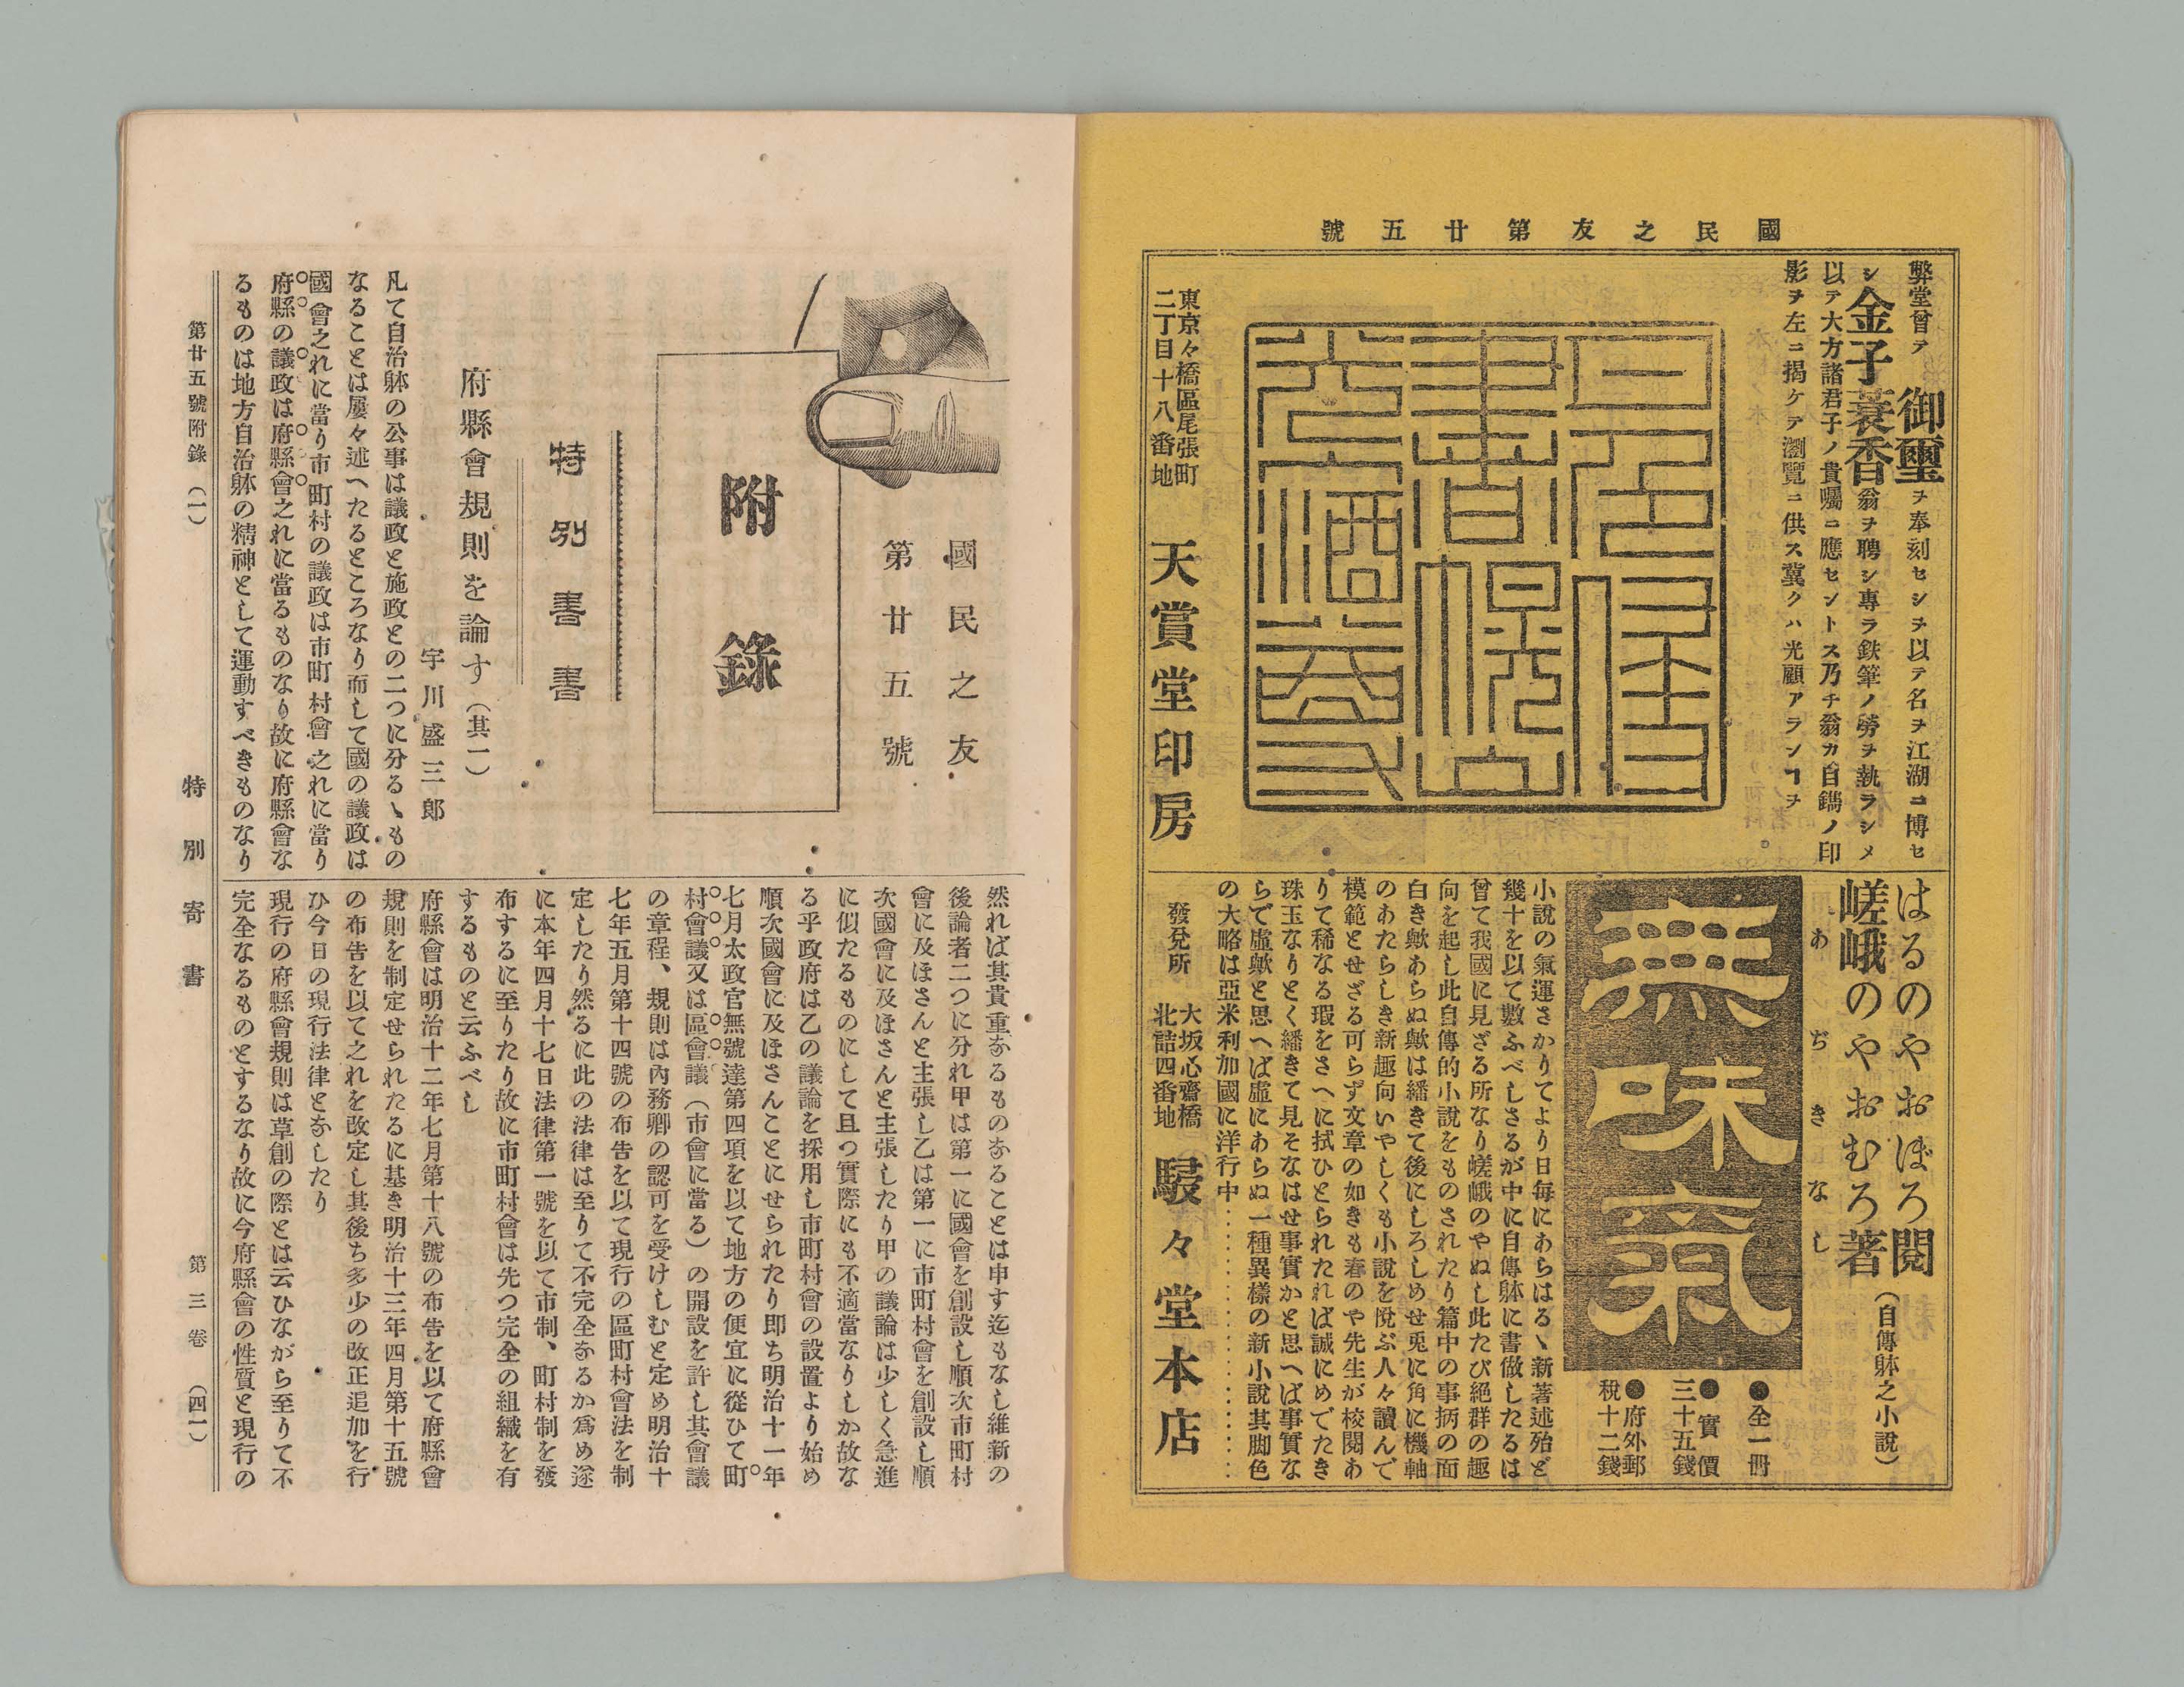 國民之友第廿五號
弊堂曾テ御璽ヲ奉刻セシヲ以テ名ヲ江湖ニ博セ
シ金子蓑香翁ヲ聘シ專ラ鉄筆ノ勞ヲ執ラシメ
以テ大方諸君子ノ貴囑ニ應セントス乃チ翁カ自鐫ノ印
影ヲ左ニ揭ケテ瀏覽ニ供ス冀クハ光顧アランヿヲ
東京々橋區尾張町
二丁目十八番地
天賞堂印房
はるのやおぼろ閱
嵯峨のやおむろ著
(自傳躰之小說)
あぢきなし
無味氣
●全一冊
●實價
三十五錢
●府外郵
稅十二錢
小說の氣運さかりてより日每にあらはるゝ新著述殆ど
幾十を以て數ふべしさるが中に自傳躰に書做したるは
曾て我國に見ざる所なり嵯峨のやぬし此たび絕群の趣
向を起し此自傳的小說をものされたり篇中の事抦の面
白き歟あらぬ歟は繙きて後にしろしめせ兎に角に機軸
のあたらしき新趣向いやしくも小說を悅ぶ人々讀んで
模範とせざる可らず文章の如きも春のや先生が校閱あ
りて稀なる瑕をさへに拭ひとられたれば誠にめでたき
珠玉なりとく繙きて見そなはせ事實かと思へば事實な
らで虛歟と思へば虛にあらぬ一種異樣の新小說其脚色
の大略は亞米利加國に洋行中……
發兌所
大坂心齋橋
北詰四番地
駸々堂本店
國民之友
第廿五號
附錄
特別書書
府縣會規則を論す(其一)
宇川盛三郎
凡て自治躰の公事は議政と施政との二つに分るゝもの
なることは屢々述へたるところなり而して國の議政は
國會之れに當り市町村の議政は市町村會之れに當り
府縣の議政は府縣會之れに當るものなり故に府縣會な
るものは地方自治躰の精神として運動すべきものなり
然れば其貴重なるものなることは申す迄もなし維新の
後論者二つに分れ甲は第一に國會を創設し順次市町村
會に及ほさんと主張し乙は第一に市町村會を創設し順
次國會に及ほさんと主張したり甲の議論は少しく急進
に似たるものにして且つ實際にも不適當なりしか故な
る乎政府は乙の議論を採用し市町村會の設置より始め
順次國會に及ほさんことにせられたり即ち明治十一年
七月太政官無號達第四項を以て地方の便宜に從ひて町
村會議又は區會議(市會に當る)の開設を許し其會議
の章程、規則は內務卿の認可を受けしむと定め明治十
七年五月第十四號の布告を以て現行の區町村會法を制
定したり然るに此の法律は至りて不完全なるか爲め遂
に本年四月十七日法律第一號を以て市制、町村制を發
布するに至りたり故に市町村會は先つ完全の組織を有
するものと云ふべし
府縣會は明治十二年七月第十八號の布告を以て府縣會
規則を制定せられたるに基き明治十三年四月第十五號
の布告を以て之れを改定し其後ち多少の改正追加を行
ひ今日の現行法律となしたり
現行の府縣會規則は草創の際とは云ひながら至りて不
完全なるものとするなり故に今府縣會の性質と現行の
第廿五號附錄(一)
特別寄書
第三卷(四一)